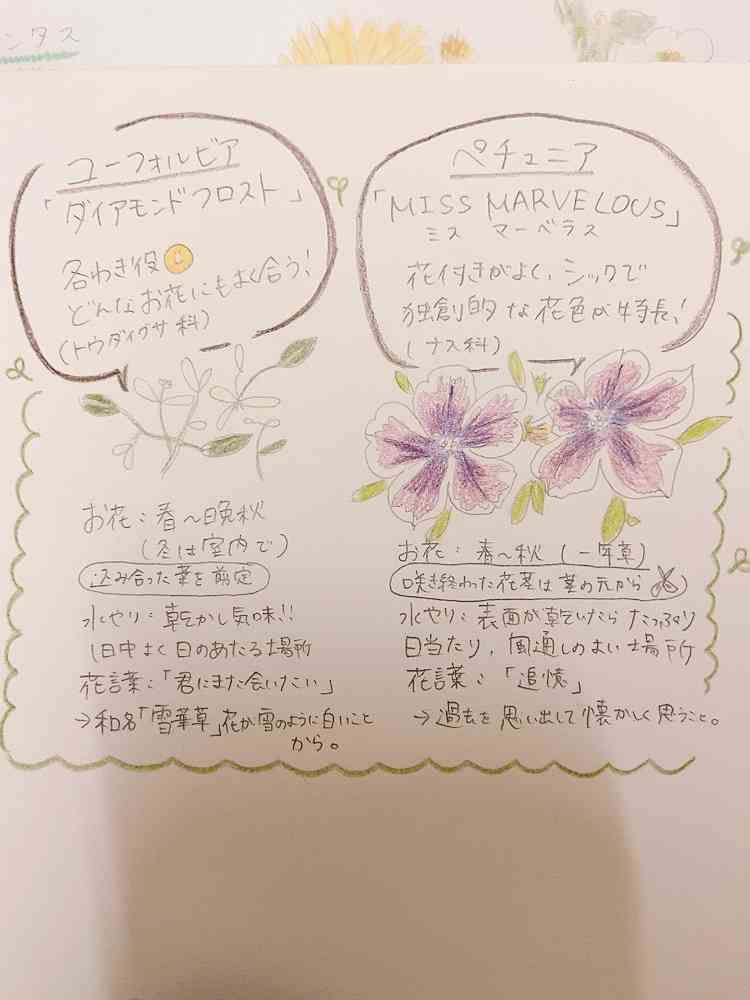 ンタス
ユーフォルビア
「ダイアモンドフロスト」
各わき役
どんなお花にもよく合う!
(トウダイグサ科)
お花:春〜晩秋
(冬は室内で)
込み合った葉を剪定
水やり:乾かし気味!!
1日中よく日のあたる場所
花言葉:「君にまた会いたい」
→和名「雪華草」花が雪のように白いこと
から。
ペチュニア
「MISS MARVELOUS」
ミス マーベラス
花付きがよく、シックで
独創的な花色が特長!
(ナス科)
お花:春〜秋(一年草)
咲き終わった花茎は茎の元から
水やり:表面が乾いたらたっぷり
日当たり、風通しのよい場所
花言葉:「追憶」
→過去を思い出して懐かしく思うこと。